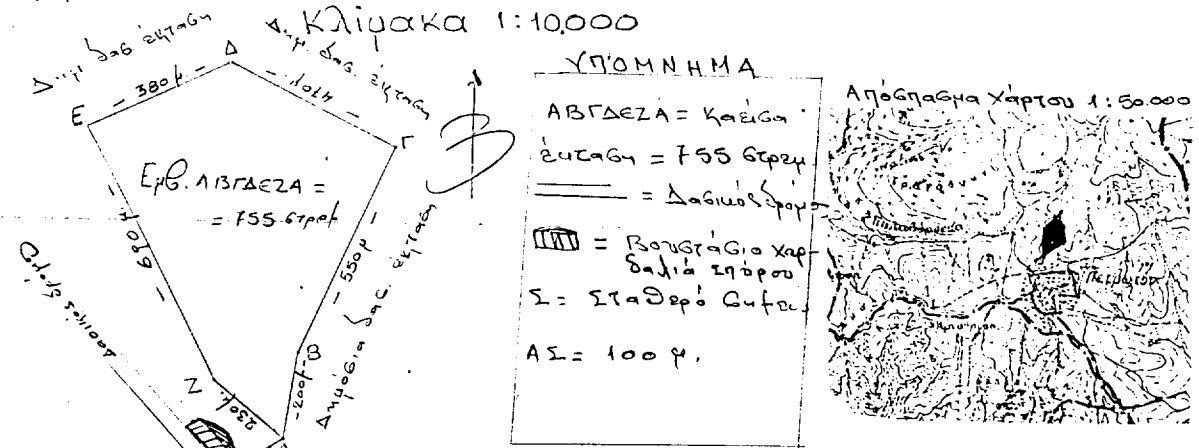 Κλίμακα 1:10.000
Δημ. δασ. έκταση
Δημ. δασ. έκταση
Δ
- 380μ -
- 470μ -
Ε
Γ
Εμβ. ΑΒΓΔΕΖΑ =
= 755 στρεμ
- 690μ -
- 550μ -
Δημόσια δασ. έκταση
Δασικός δρόμος
Β
Ζ
-200μ-
230μ.
ΥΠΟΜΝΗΜΑ
ΑΒΓΔΕΖΑ = καείσα
έκταση = 755 στρεμ.
= Δασικός δρόμο
= Βουστάσιο Χαρ-
δαλιά Σπύρου
Σ = Σταθερό σημεί
ΑΣ = 100 μ.
Απόσπασμα χάρτου 1:50.000